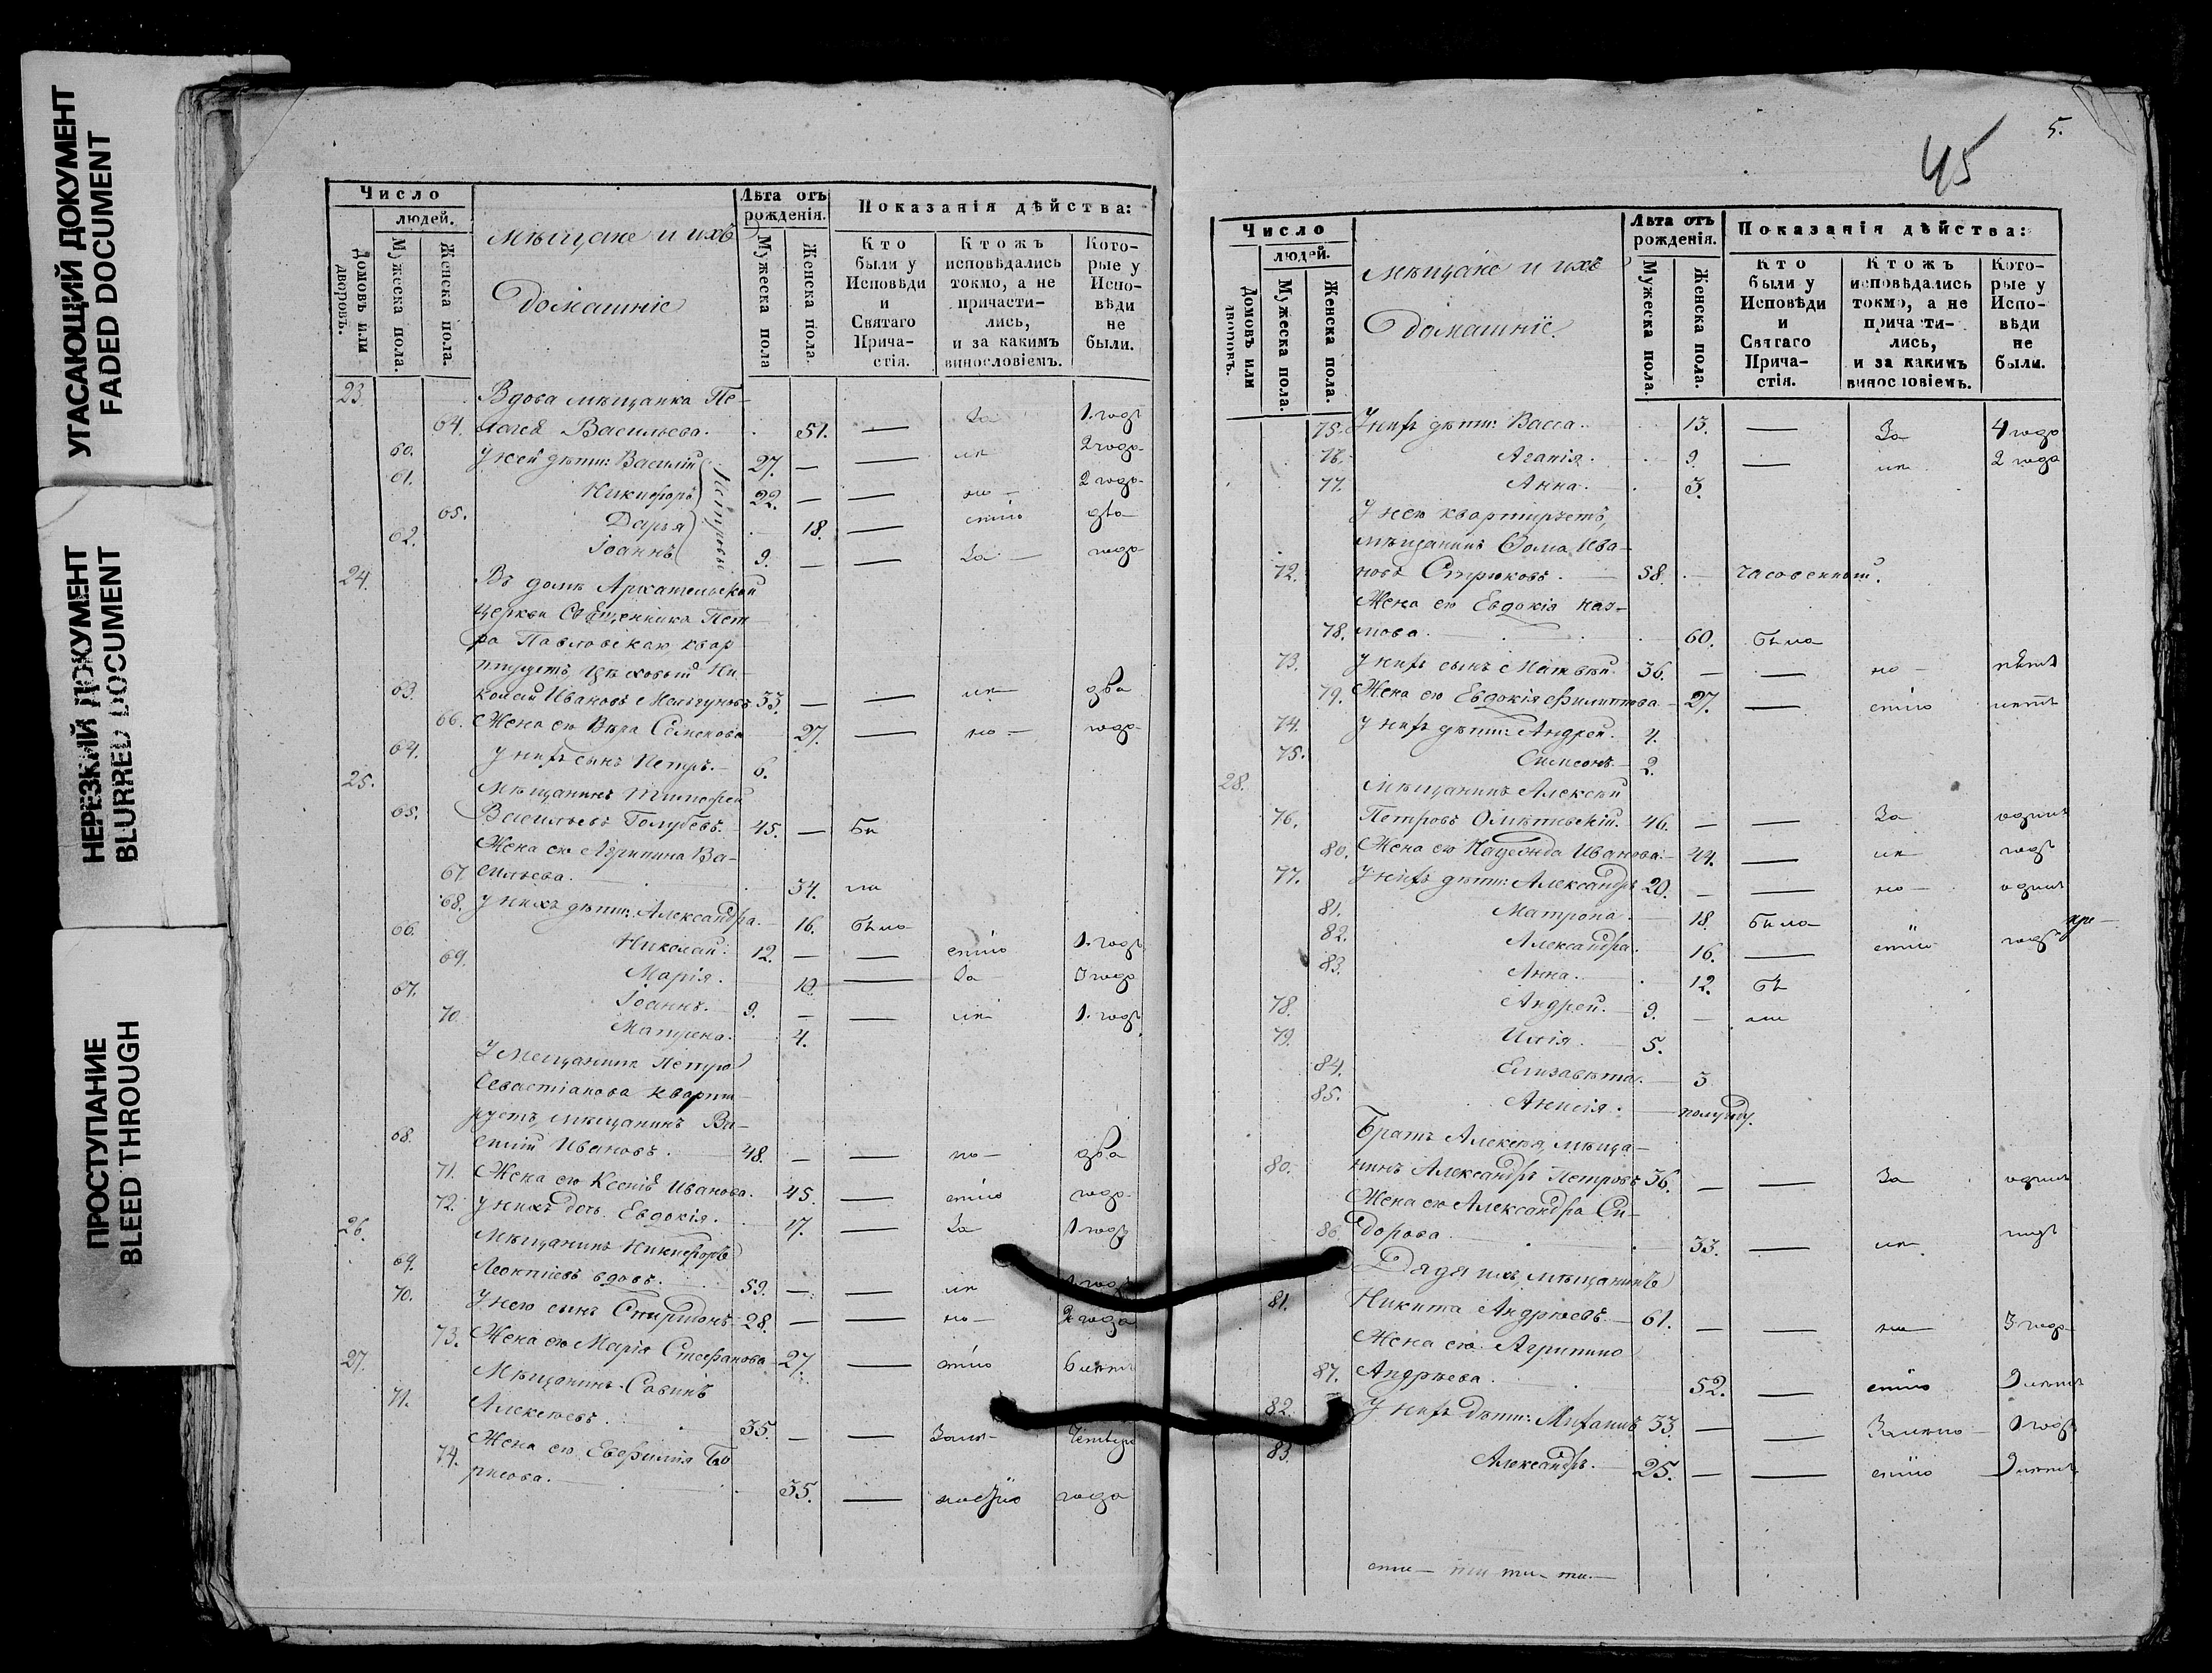 УГАСАЮЩИЙ ДОКУМЕНТ
FADED DOCUMENT
НЕРЕЗКИЙ ДОКУМЕНТ
BLURRED DOCUMENT
ПРОСТУПАНИЕ
BLEED THROUGH
Число
людей.
Домовъ или дворовъ.
Мужеска пола.
Женска пола.
Мѣщане и ихъ
Домашніе
Лѣта отъ рожденія.
Мужеска пола
Женска пола.
Показанія дѣйства:
Кто были у Исповѣди и Святаго Прича- стія.
Ктожъ исповѣдались токмо, а не причасти- лись, и за какимъ винословіемъ.
Кото- рые у Испо- вѣди не были.
23. Вдова мѣщанка Пе-
64. лагея Васильева. 51. — За 1. годъ
60. У ней дѣти: Василій 27. — — ли 2 года
61. Никифоръ 22. — — но — 2 года
Петровы
65. Дарья 18. — стію два
62. Іоаннъ 9. — — За — года
24. Въ домѣ Архательской
церкви Священника Пет
ра Павловскаго квар
тируетъ цѣховый Ни-
63. колай Ивановъ Мельгуновъ 33. — — ли два
66. Жена его Вѣра Семенова 27. — но — года
64. У нихъ сынъ Петръ. — 6.
25. Мѣщанинъ Тимофей
65. Васильевъ Голубевъ. 45. — Бы
Жена его Агрипина Ва-
67. сильева. 34. ли
68. У нихъ дѣти: Александра. 16. была
66. Николай. 12. — — стію 1. годъ
69. Марія. 10. — За 3 года
67. Іоаннъ. 9. — — ли 1. годъ
70. Матрена. 4.
У Мещанина Петра
Севастіанова кварти
руетъ, мѣщанинъ Ва-
68. силій Ивановъ. 48. — — но — два
71. Жена его Ксенія Иванова. 45. — стію года
72. У нихъ дочь Евдокія. 17. — За 1 годъ
26. Мѣщанинъ Никифоръ
69. Леонтіевъ вдовъ. 59. — — ли 1 годъ
70. У него сынъ Спиридонъ 28. — — но — 2 года
73. Жена его Марія Стефанова 27. — стію 6 лѣтъ
27. Мѣщанинъ Савинъ
71. Алексѣевъ. 35. — — Замѣ- Четыре
Жена его Евфимія Бо
74. рисова. 35. — года
5.
45
Число
людей.
Домовъ или дворовъ.
Мужеска пола.
Женска пола.
Мѣщане и ихъ
Домашніе.
Лѣта отъ рожденія.
Мужеска пола.
Женска пола.
Показанія дѣйства:
Кто были у Исповѣди и Святаго Прича- стія.
Ктожъ исповѣдались токмо, а не причасти- лись, и за какимъ винословіемъ.
Кото- рые у Испо- вѣди не были.
75. У нихъ дѣти: Васса. 13. — За 4 года
76. Агапія. 9. — ли 2 года
77. Анна. 3.
У нею квартирѣетъ,
мѣщанинъ Ѳома Ива-
72. новъ Стрюковъ. 58. — часовенный.
Жена его Евдокія Нау-
78. мова. 60. была
73. У нихъ сынъ Матвѣй. 36. — — но — пять
79. Жена его Евдокія Филиппова 27. — стію лѣтъ
74. У нихъ дѣти: Андрей. 4.
75. Симеонъ. 2.
28. Мѣщанинъ Алексѣй
76. Петровъ 46. — — За одинъ
80. Жена его Иванова. 44. — ли годъ
77. У нихъ дѣти: Александръ 20. — — но — одинъ
81. Матрона. 18. была
82. Александра. 16. — стію годъ
83. Анна. 12. бы
78. Андрей. 9. — ли
79. Илія. 5.
84. Елизавета. 3
85. Анисія. — полугоду.
Братъ Алексѣя, мѣща-
80. нинъ Александръ Петровъ 36. — — За одинъ
Жена его Александра Си-
86. дорова. 33. — ли годъ
Дядя ихъ, мѣщанинъ
81. Никита Андрѣевъ. 61. — — но 3 года
Жена его Агрипина
87. Андрѣева. 52. — стію 9 лѣтъ
82. У нихъ дѣти: Михаилъ 33. — — Замѣно — 1 годъ
83. Александръ. — 25. — — стію 9 лѣтъ